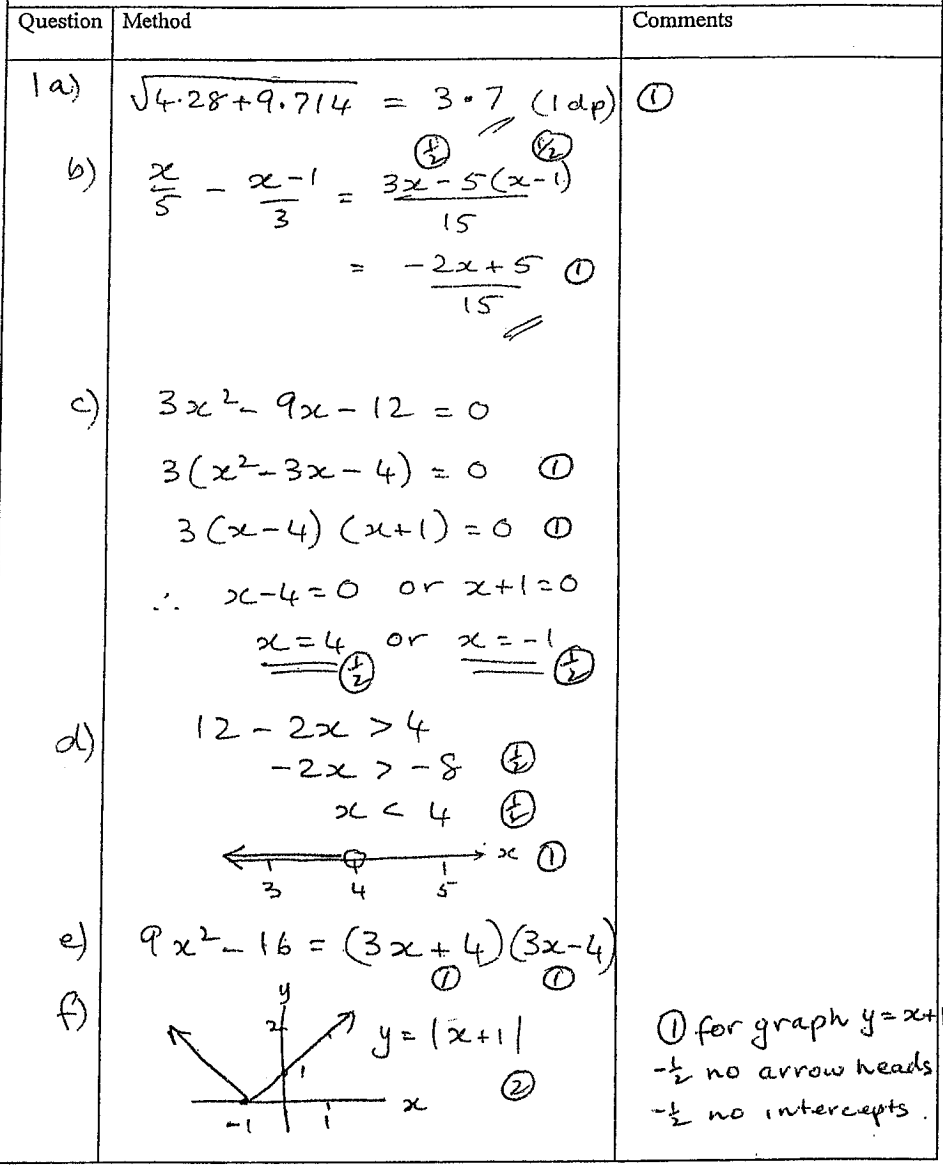 Question Method Comments
1a) √4.28+9.714 = 3.7 (1dp) ①
½ ½
b) x/5 - x-1/3 = 3x-5(x-1)/15
= -2x+5/15 ①
c) 3x²-9x-12=0
3(x²-3x-4)=0 ①
3(x-4)(x+1)=0 ①
∴ x-4=0 or x+1=0
x=4 or x=-1
½ ½
d) 12-2x>4
-2x>-8 ½
x<4 ½
x ①
3 4 5
e) 9x²-16=(3x+4)(3x-4)
① ①
f) y
2 y=|x+1| ① for graph y=x+1
1 ② -½ no arrow heads
x -½ no intercepts.
-1 1